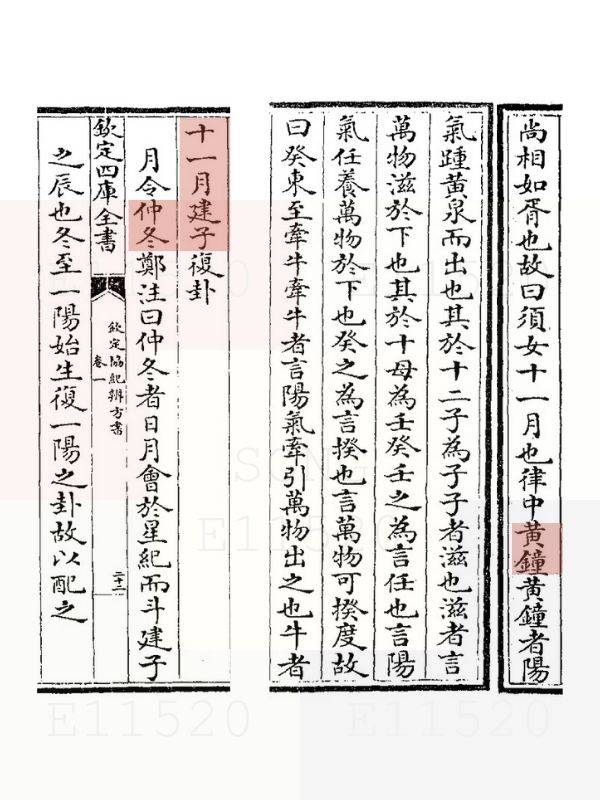 尚相如胥也故曰須女十一月也律中黄鐘黄鐘者陽
氣踵黄泉而出也其於十二子為子子者滋也滋者言
萬物滋於下也其於十母為壬癸壬之為言任也言陽
氣任養萬物於下也癸之為言揆也言萬物可揆度故
曰癸東至牽牛牽牛者言陽氣牽引萬物出之也牛者
十一月建子復卦
月令仲冬鄭注曰仲冬者日月會於星紀而斗建子
欽定四庫全書
欽定協紀辨方書
卷一
二十二
之辰也冬至一陽始生復一陽之卦故以配之
SONG
E11520
E11520
E11520
E11520